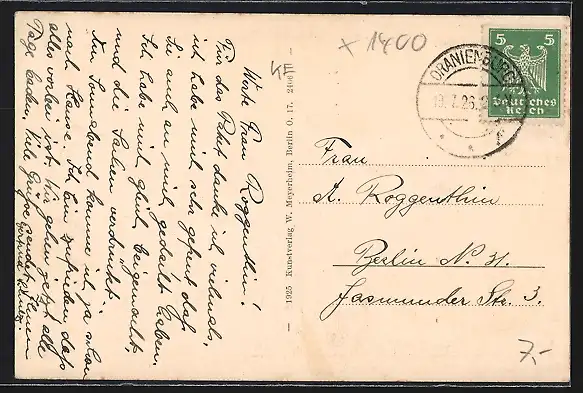 Werte Frau Roggenthin!
Für das Paket danke ich vielmals,
ich habe mich sehr gefreut daß
Sie auch an mich gedacht haben.
Ich habe mich gleich beigemacht
und die Sachen verdrückt.
Am Sonnabend komme ich ja schon
nach Hause. Ich bin zufrieden, daß
alles vorbei ist. Wir gehen jetzt alle
Tage baden. Viele Grüße sendet Ihnen
1925 Kunstverlag W. Meyerheim, Berlin O. 17. 2406
x 1400
ORANIENBURG
5 5
Deutsches
Reich
Frau
A. Roggenthin
Berlin N. 31.
Jasmunder Str. 3.
7,-